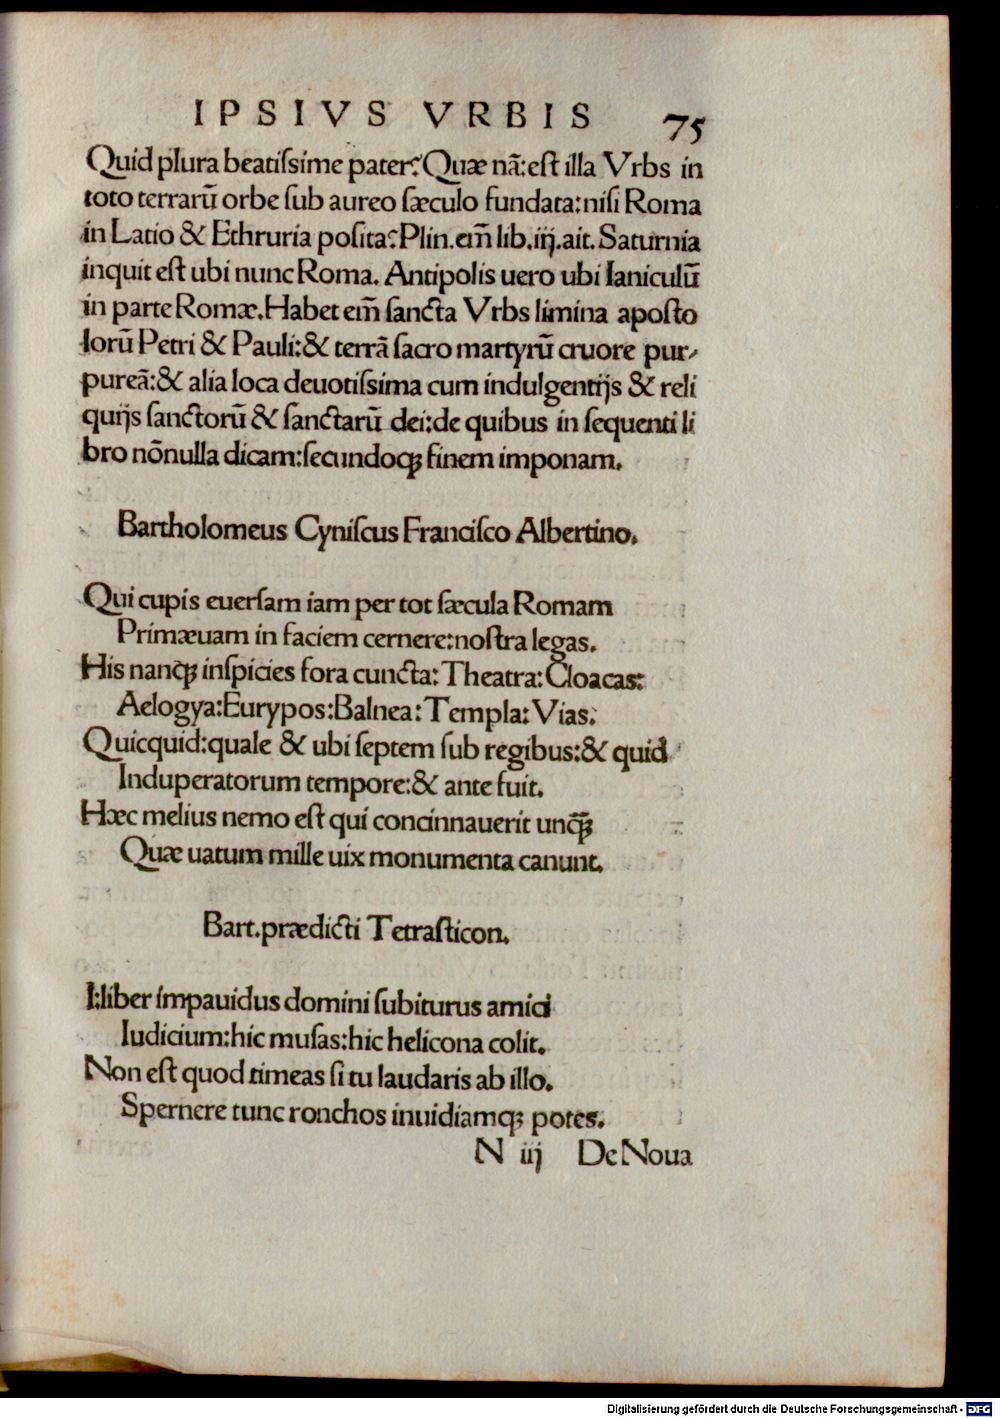 IPSIVS VRBIS 75
Quid plura beatiſsime pater? Quæ nā:eſt illa Vrbs in
toto terrarū orbe ſub aureo ſæculo fundata:niſi Roma
in Latio & Ethruria poſita? Plin.em̄ lib.iij.ait.Saturnia
inquit eſt ubi nunc Roma. Antipolis uero ubi Ianiculū
in parte Romæ.Habet em̄ ſancta Vrbs limina apoſto
lorū Petri & Pauli:& terrā ſacro martyrū cruore pur⸗
pureā:& alia loca deuotiſsima cum indulgentijs & reli
quijs ſanctorū & ſanctarū dei:de quibus in ſequenti li
bro nōnulla dicam:ſecundoqꝫ finem imponam.
Bartholomeus Cyniſcus Franciſco Albertino.
Qui cupis euerſam iam per tot ſæcula Romam
Primæuam in faciem cernere:noſtra legas.
His nanqꝫ inſpicies fora cuncta: Theatra: Cloacas:
Aelogya:Eurypos:Balnea: Templa: Vias.
Quicquid:quale & ubi ſeptem ſub regibus:& quid
Induperatorum tempore:& ante fuit.
Hæc melius nemo eſt qui concinnauerit unq̄ꝫ
Quæ uatum mille uix monumenta canunt.
Bart.prædicti Tetraſticon.
I:liber impauidus domini ſubiturus amici
Iudicium:hic muſas:hic helicona colit.
Non eſt quod timeas ſi tu laudaris ab illo.
Spernere tunc ronchos inuidiamqꝫ potes.
N iij De Noua
Digitalisierung gefördert durch die Deutsche Forschungsgemeinschaft - DFG